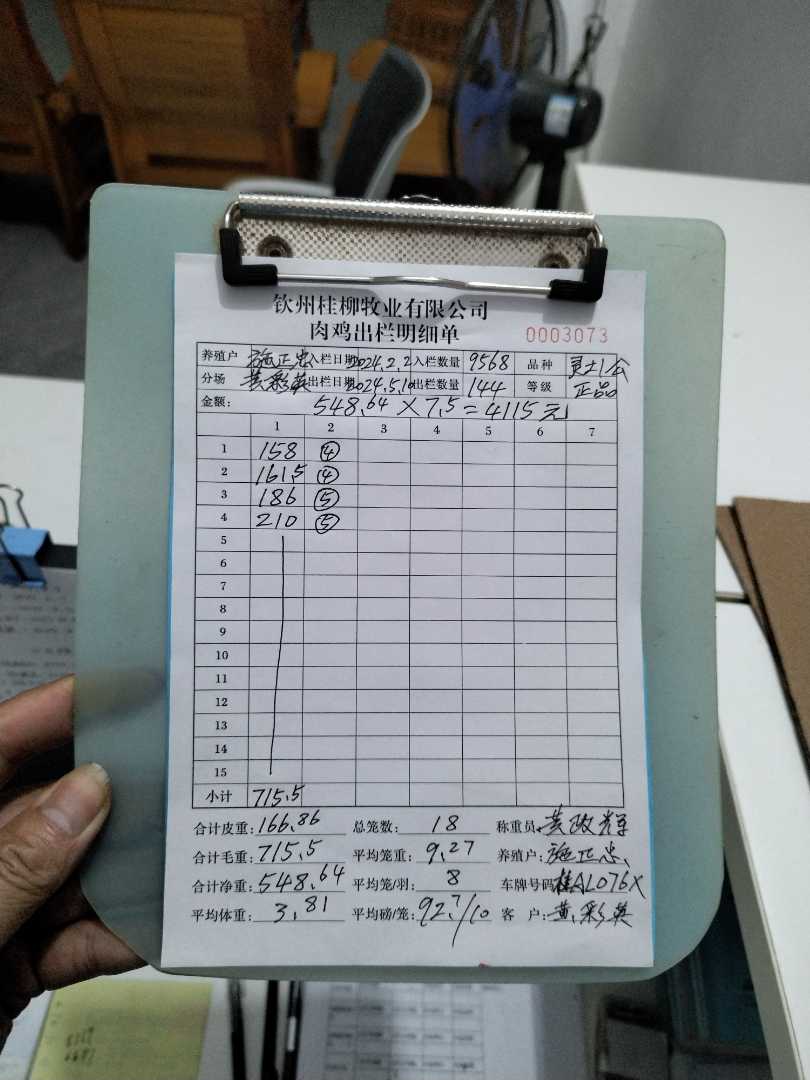 钦州桂柳牧业有限公司
肉鸡出栏明细单 0003073
养殖户 施正忠 入栏日期 2024.2.2 入栏数量 9568 品种 灵士1公
分场 黄彩英 出栏日期 2024.5.10 出栏数量 144 等级 正品
金额: 548.64×7.5=4115元
1 2 3 4 5 6 7
1 158 ④
2 161.5 ④
3 186 ⑤
4 210 ⑤
5
6
7
8
9
10
11
12
13
14
15
小计 715.5
合计皮重: 166.86 总笼数: 18 称重员: 黄
合计毛重: 715.5 平均笼重: 9.27 养殖户: 施正忠
合计净重: 548.64 平均笼/羽: 8 车牌号码: 桂AL076X
平均体重: 3.81 平均磅/笼: 92.7/10 客 户: 黄彩英